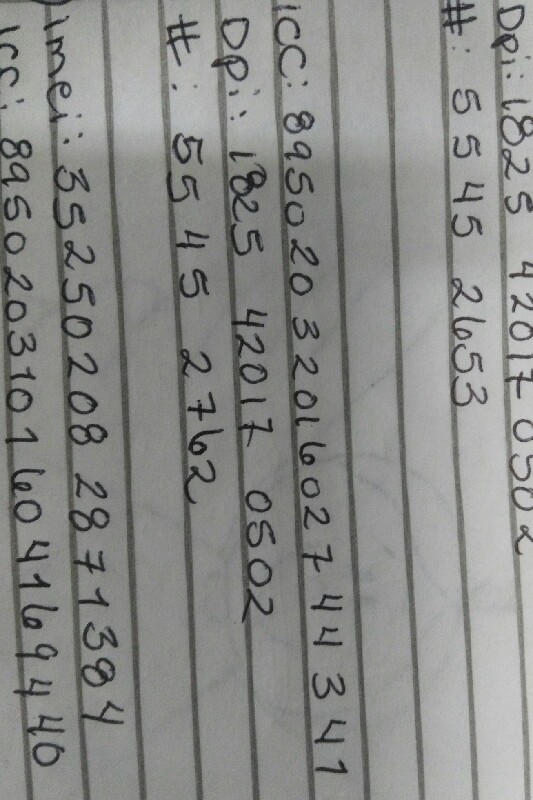 Dpi: 1825 42017 0502
#: 5545 2653
icc: 8950203201602744341
Dpi: 1825 42017 0502
#: 5545 2762
imei: 352502082871384
icc: 8950203101604169440